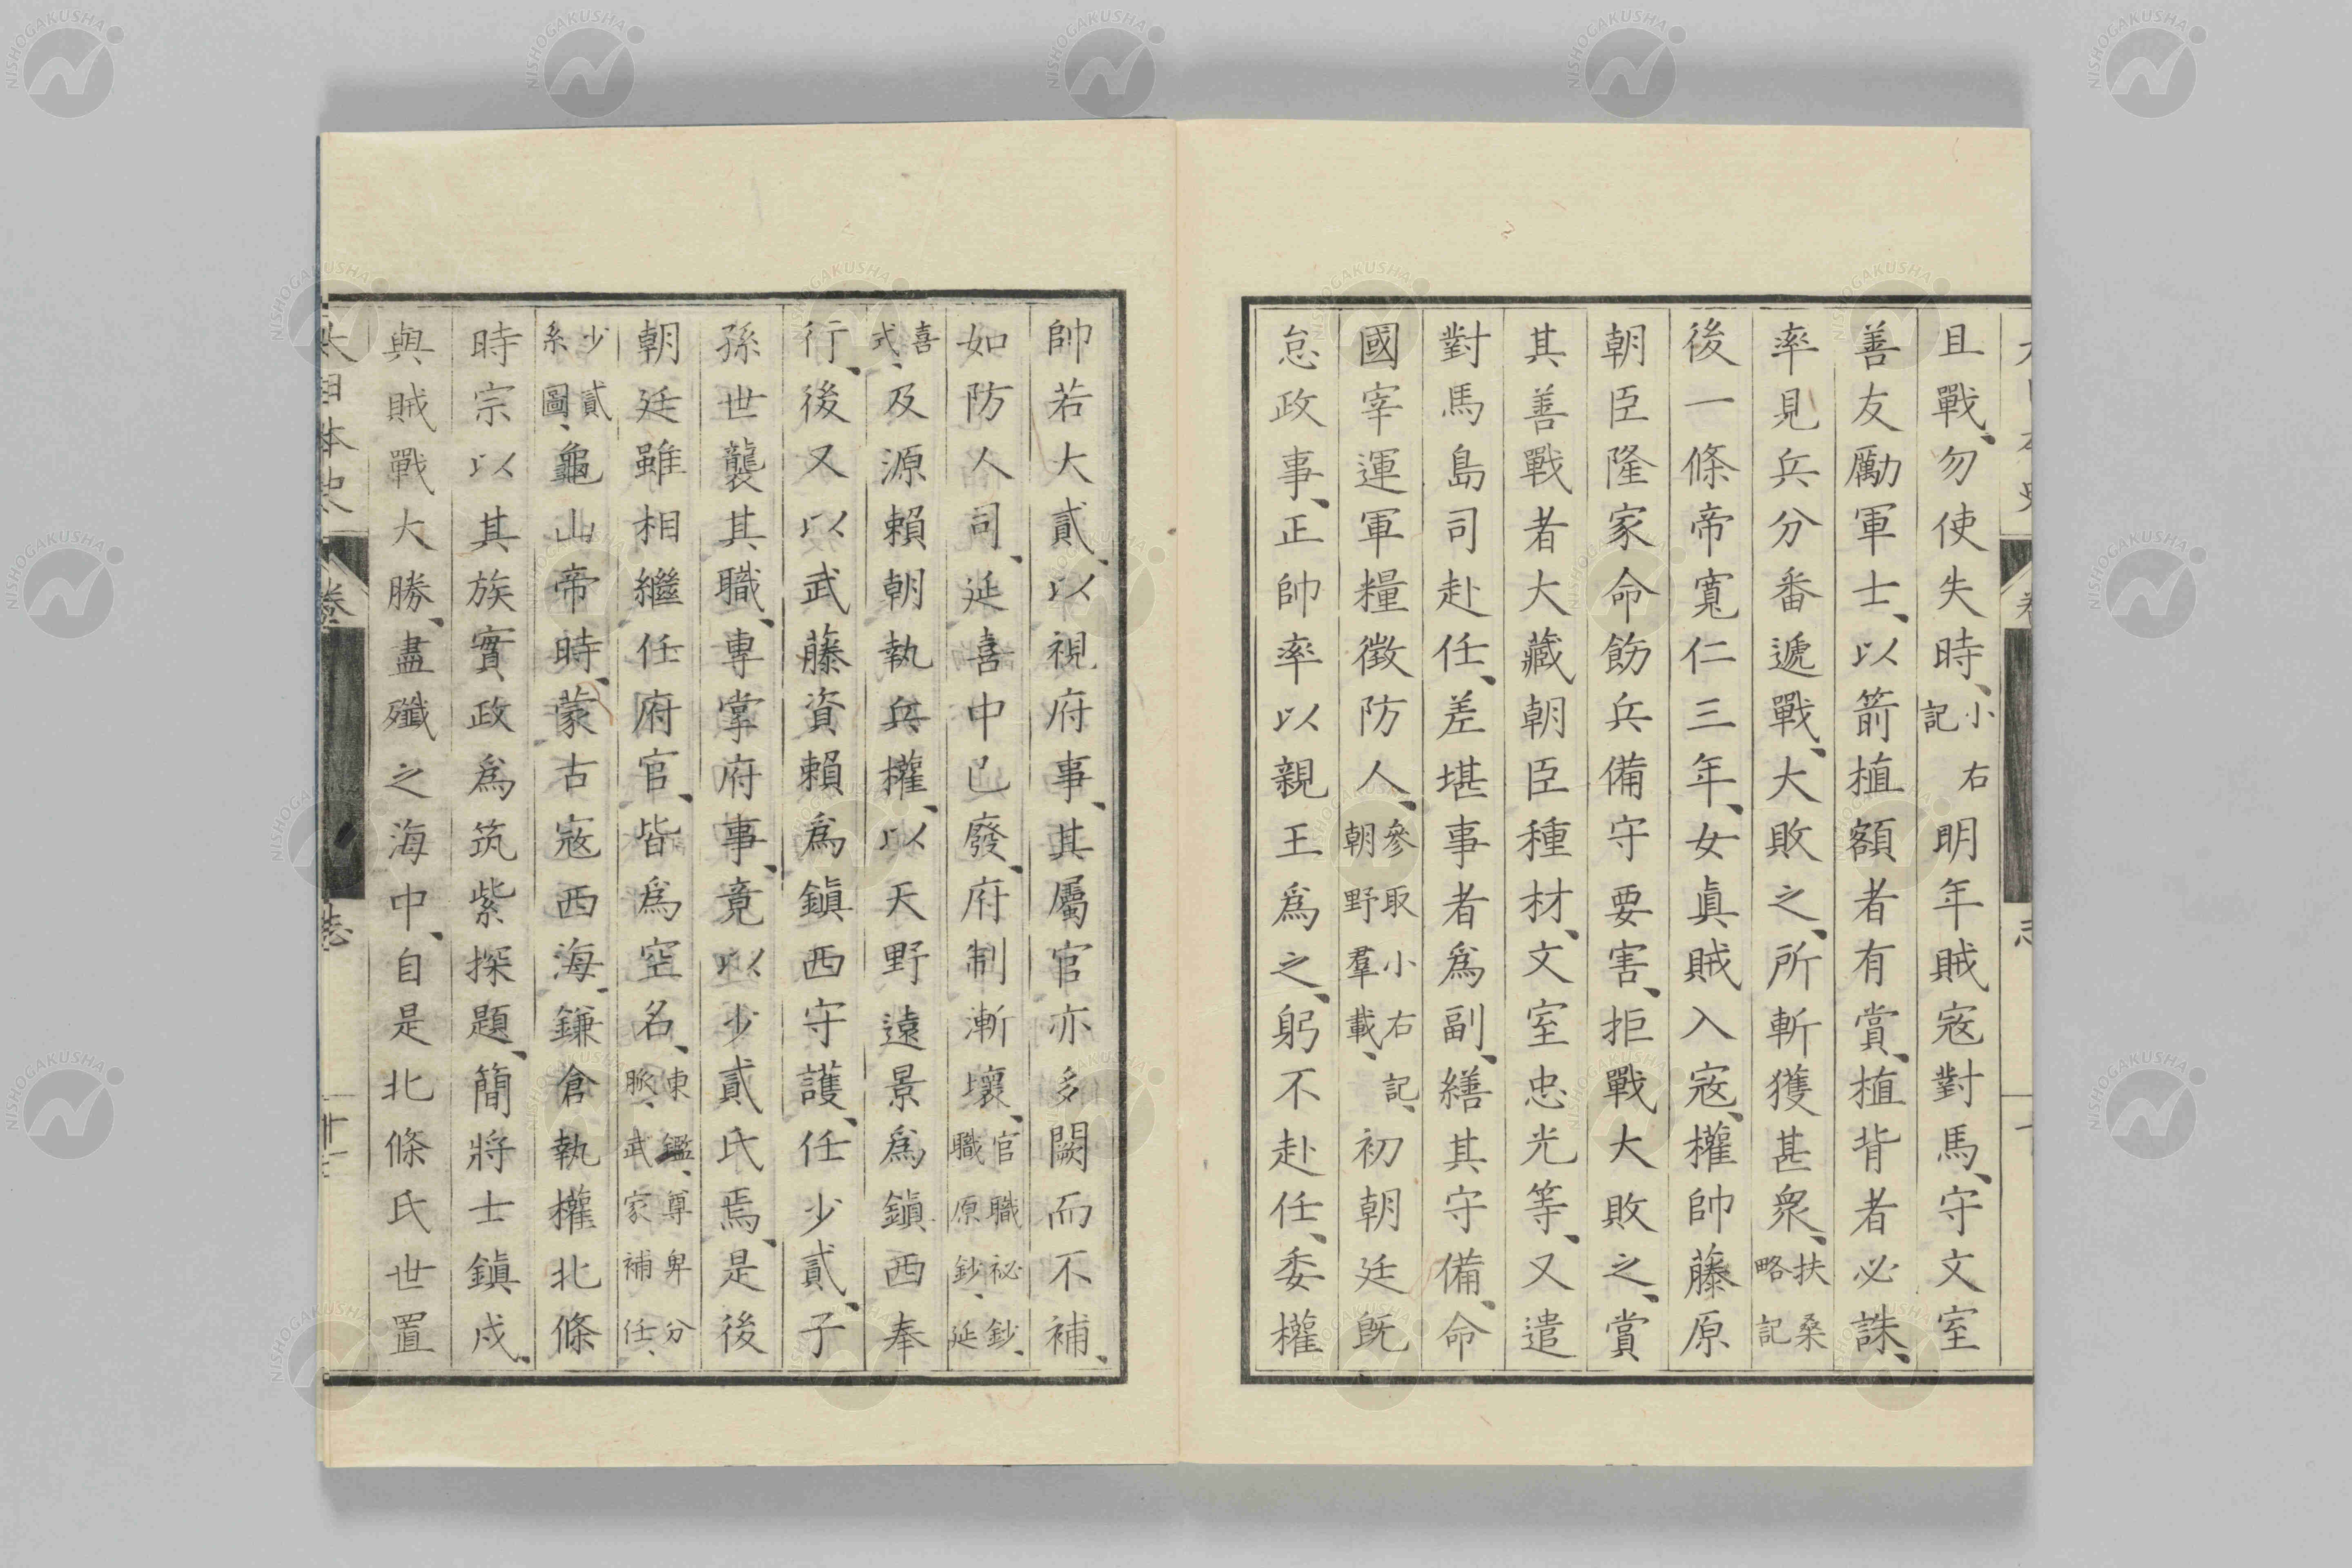 且戰、勿使失時、小右記明年賊寇對馬、守文室
善友勵軍士、以箭植額者有賞、植背者必誅、
率見兵分番遞戰、大敗之、所斬獲甚衆、扶桑略記
後一條帝寬仁三年、女眞賊入寇、權帥藤原
朝臣隆家命飭兵備守要害、拒戰大敗之、賞
其善戰者大藏朝臣種材、文室忠光等、又遣
對馬島司赴任、差堪事者爲副、繕其守備、命
國宰運軍糧徵防人、參取小右記、朝野羣載、初朝廷旣
怠政事、正帥率以親王爲之、躬不赴任、委權
帥若大貳、以視府事、其屬官亦多闕而不補、
如防人司、延喜中已廢、府制漸壞、官職祕鈔、職原鈔、延
喜式、及源賴朝執兵權、以天野遠景爲鎭西奉
行、後又以武藤資賴爲鎭西守護、任少貳、子
孫世襲其職、專掌府事、竟以少貳氏焉、是後
朝廷雖相繼任府官、皆爲空名、東鑑、尊卑分脈、武家補任、
少貳系圖、龜山帝時、蒙古寇西海、鎌倉執權北條
時宗以其族實政爲筑紫探題、簡將士鎭戍、
與賊戰大勝、盡殲之海中、自是北條氏世置
大日本史 卷 志
NISHOGAKUSHA